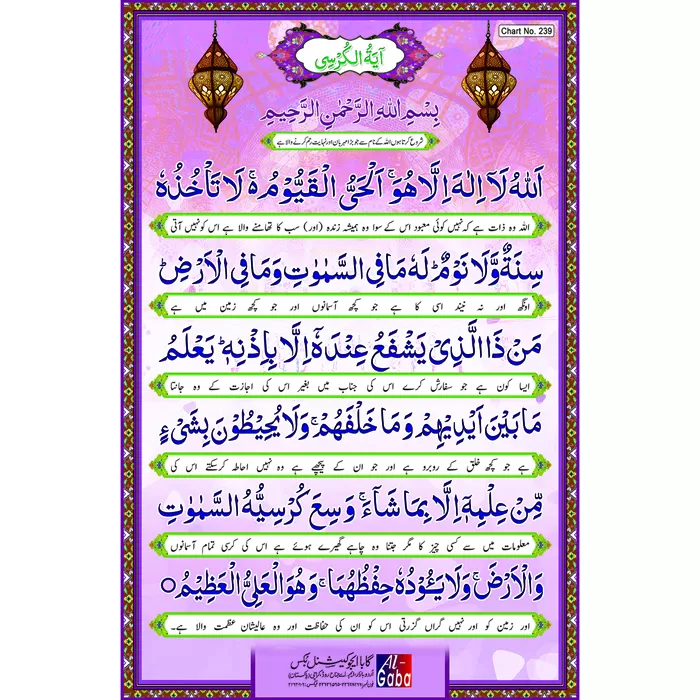 Chart No. 239
آیۃ الکرسی
بِسْمِ اللهِ الرَّحْمٰنِ الرَّحِیْمِ
شروع کرتا ہوں اللہ کے نام سے جو بڑا مہربان اور نہایت رحم کرنے والا ہے
اَللهُ لَاۤ اِلٰهَ اِلَّا هُوَۚ اَلْحَیُّ الْقَیُّوْمُ ەۚ لَا تَاْخُذُهٗ
اللہ وہ ذات ہے کہ نہیں کوئی معبود اس کے سوا وہ ہمیشہ زندہ (اور) سب کا تھامنے والا ہے اس کو نہیں آتی
سِنَةٌ وَّلَا نَوْمٌؕ لَهٗ مَا فِی السَّمٰوٰتِ وَمَا فِی الْاَرْضِؕ
اونگھ اور نہ نیند اسی کا ہے جو کچھ آسمانوں اور جو کچھ زمین میں ہے
مَنْ ذَا الَّذِیْ یَشْفَعُ عِنْدَهٗۤ اِلَّا بِاِذْنِهٖؕ یَعْلَمُ
ایسا کون ہے جو سفارش کرے اس کی جناب میں بغیر اس کی اجازت کے وہ جانتا
مَا بَیْنَ اَیْدِیْهِمْ وَمَا خَلْفَهُمْۚ وَلَا یُحِیْطُوْنَ بِشَیْءٍ
ہے جو کچھ خلق کے روبرو ہے اور جو ان کے پیچھے ہے وہ نہیں احاطہ کرسکتے اس کی
مِّنْ عِلْمِهٖۤ اِلَّا بِمَا شَآءَۚ وَسِعَ كُرْسِیُّهُ السَّمٰوٰتِ
معلومات میں سے کسی چیز کا مگر جتنا وہ چاہے گھیرے ہوئے ہے اس کی کرسی تمام آسمانوں
وَالْاَرْضَۚ وَلَا یَـُٔوْدُهٗ حِفْظُهُمَاۚ وَهُوَ الْعَلِیُّ الْعَظِیْمُ ○
اور زمین کو اور نہیں گراں گزرتی اس کو ان کی حفاظت اور وہ عالیشان عظمت والا ہے۔
گابا ایجوکیشنل بکس
AL-Gaba